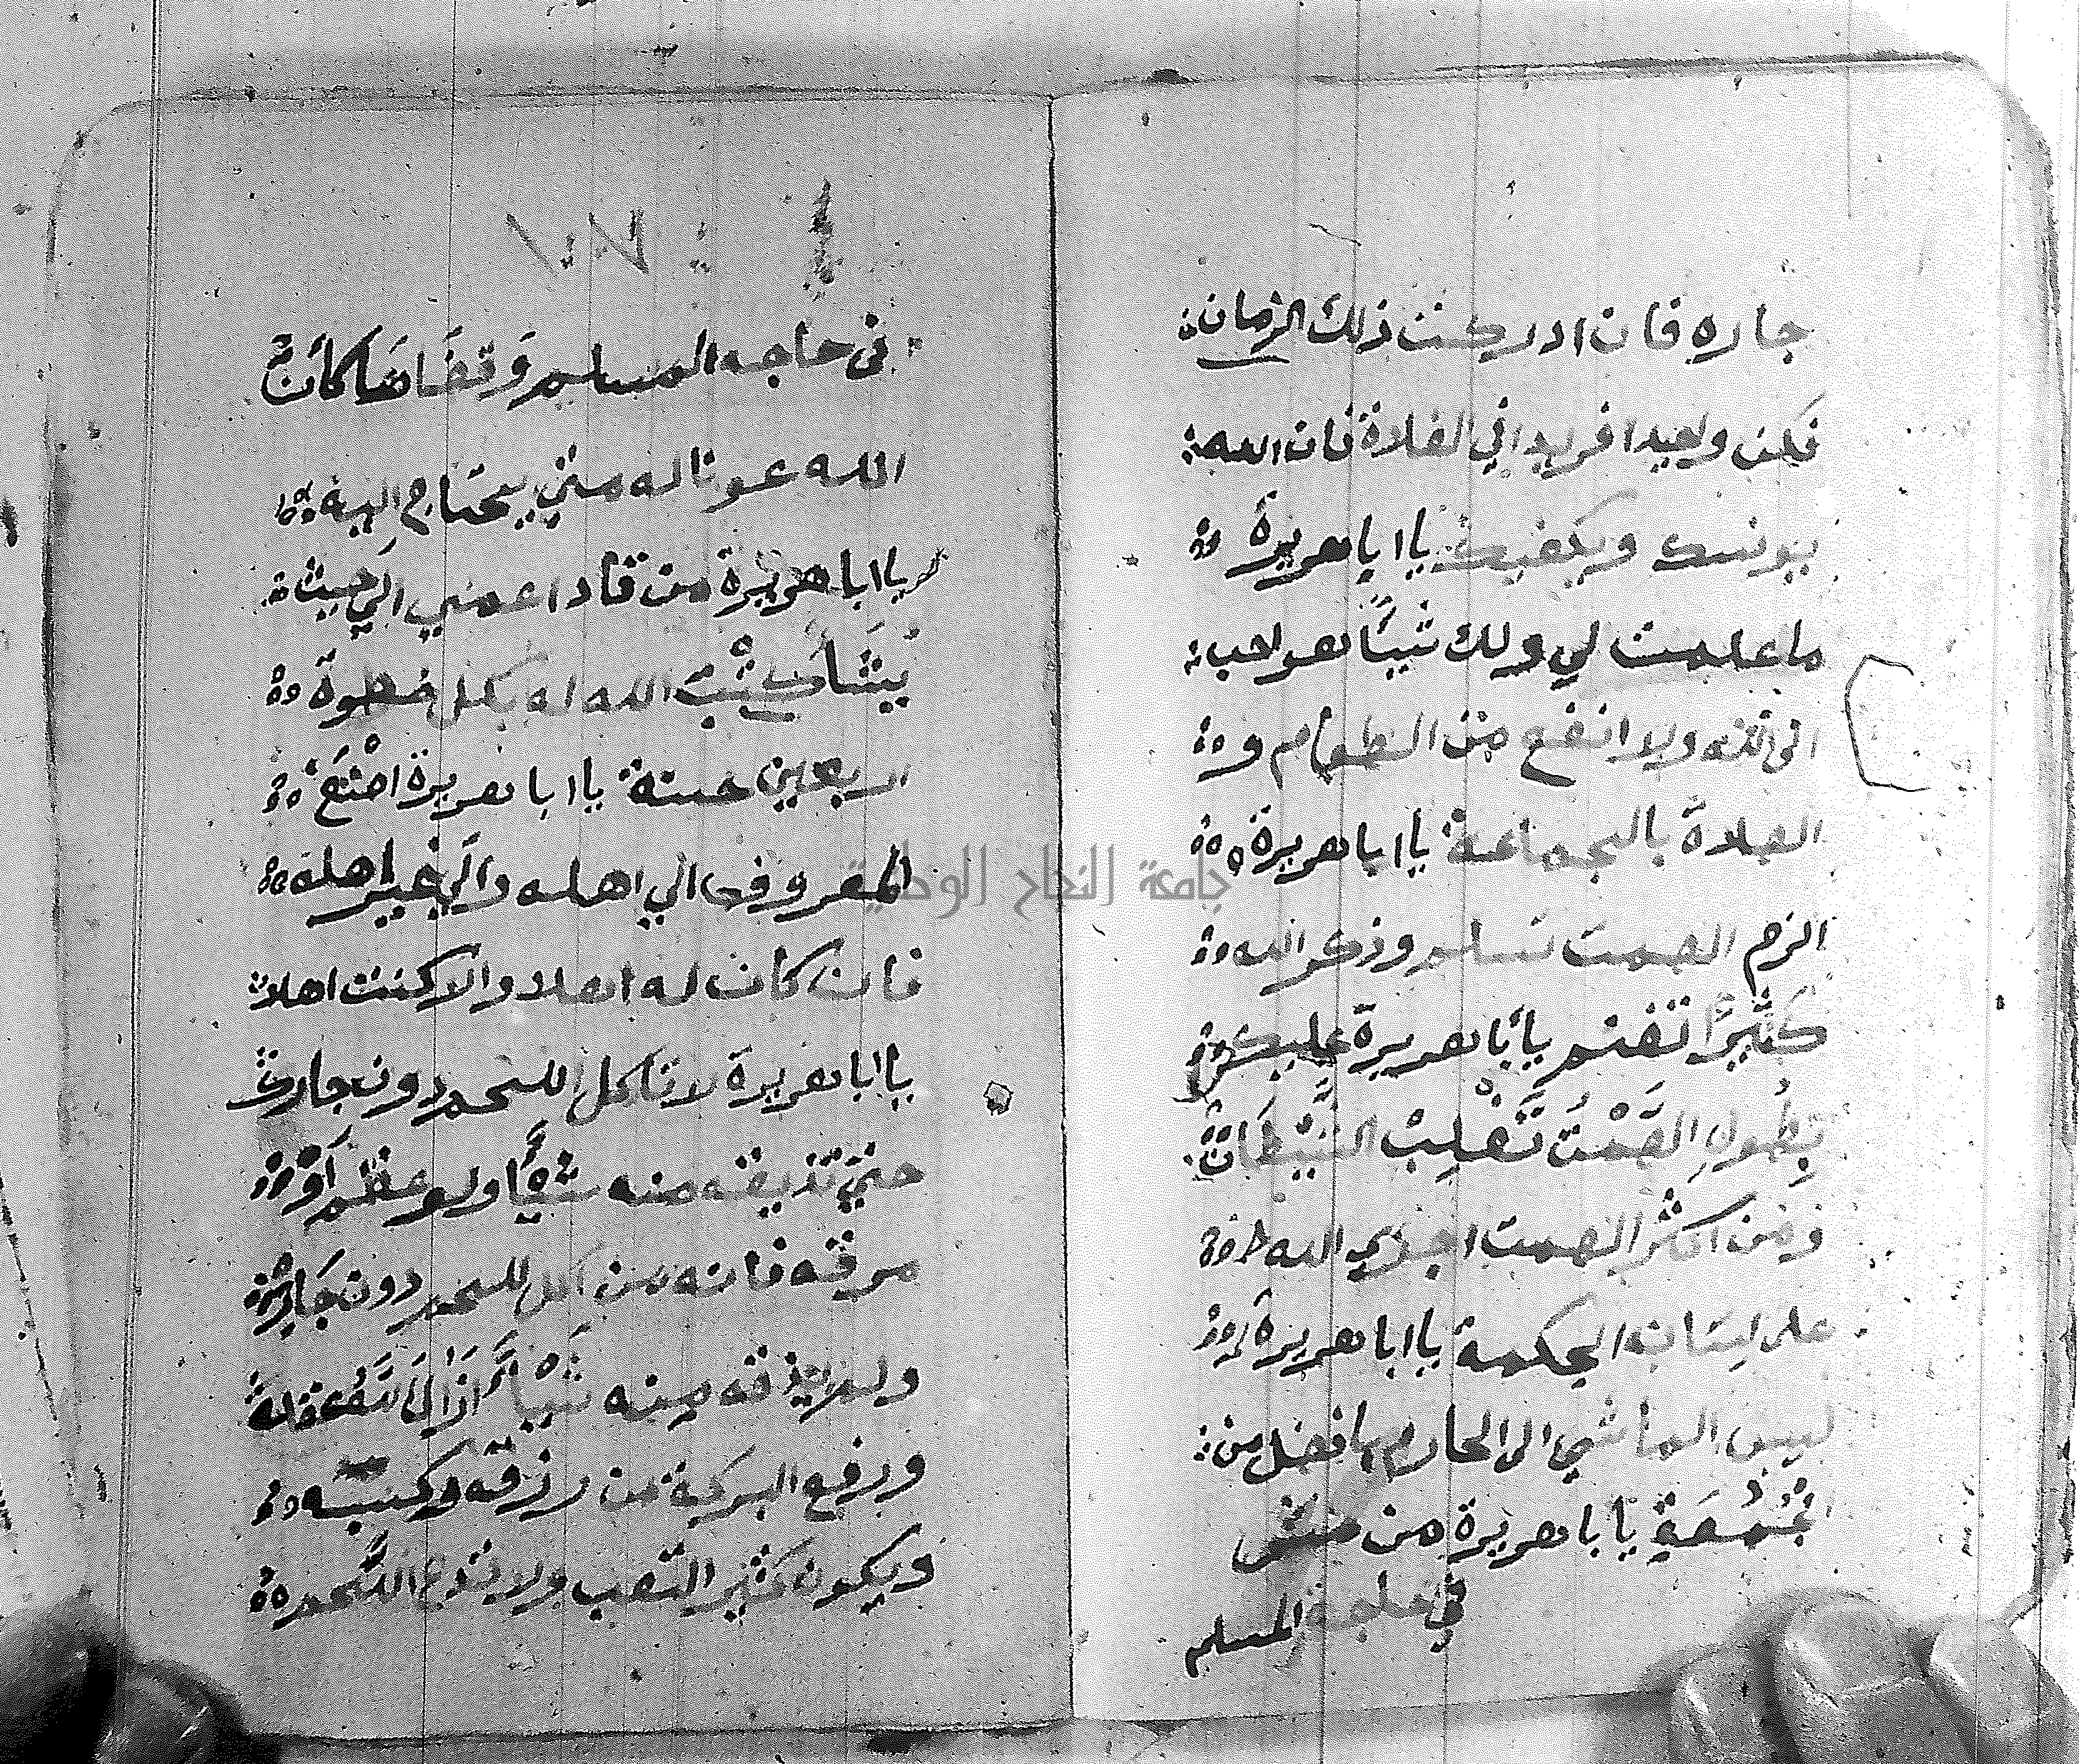 جاره فان ادركت ذلك الزمان
فكن وحيدا فريدا في الفلاة فان الله
يونسك ويكفيك يا ابا هريرة
ما علمت لي ولك شيأ هو احب
الى الله ولا انفع من الطعام و
الصلاة بالجماعة يا ابا هريرة
الزم الصمت تسلم وذكر الله
كثيرًا تغنم يا أبا هريرة عليك
بطُولِ الصَّمْت تَغْلِبْ الشَّيْطَان
ومن اكثر الصمت اجرى الله
على لسانه الحكمة يا ابا هريرة
ليس الماشي الى المحارم بافضل من
يا ابا هريرة من مشى
في حاجة المسلم
في حاجه المسلم وَقضَاهَا كَانَ
الله عونا له متي يحتاج اليه
يا ابا هريرة من قاد اعمي الَي حيث
يَشَأ كتْبَ الله له بكل خطوة
اربعين حسنة يا ابا هريرة اصْنَع
المعروف الي اهله والَي غير اهله
فان كان له اهلا والا كنت اهلا
يا ابا هريرة لا تاكل اللحم دون جارك
حتي تذيقه منه شيًأ ولو عظم أو
مرقه فانه من اكل اللحم دون جَاره
ولم يذقه منه شَيْأً
ورفع البركة من رزقه وكسبه
ويكون كثير التعب ولا يشبع اللَّحم
جامعة النجاح الوطنية